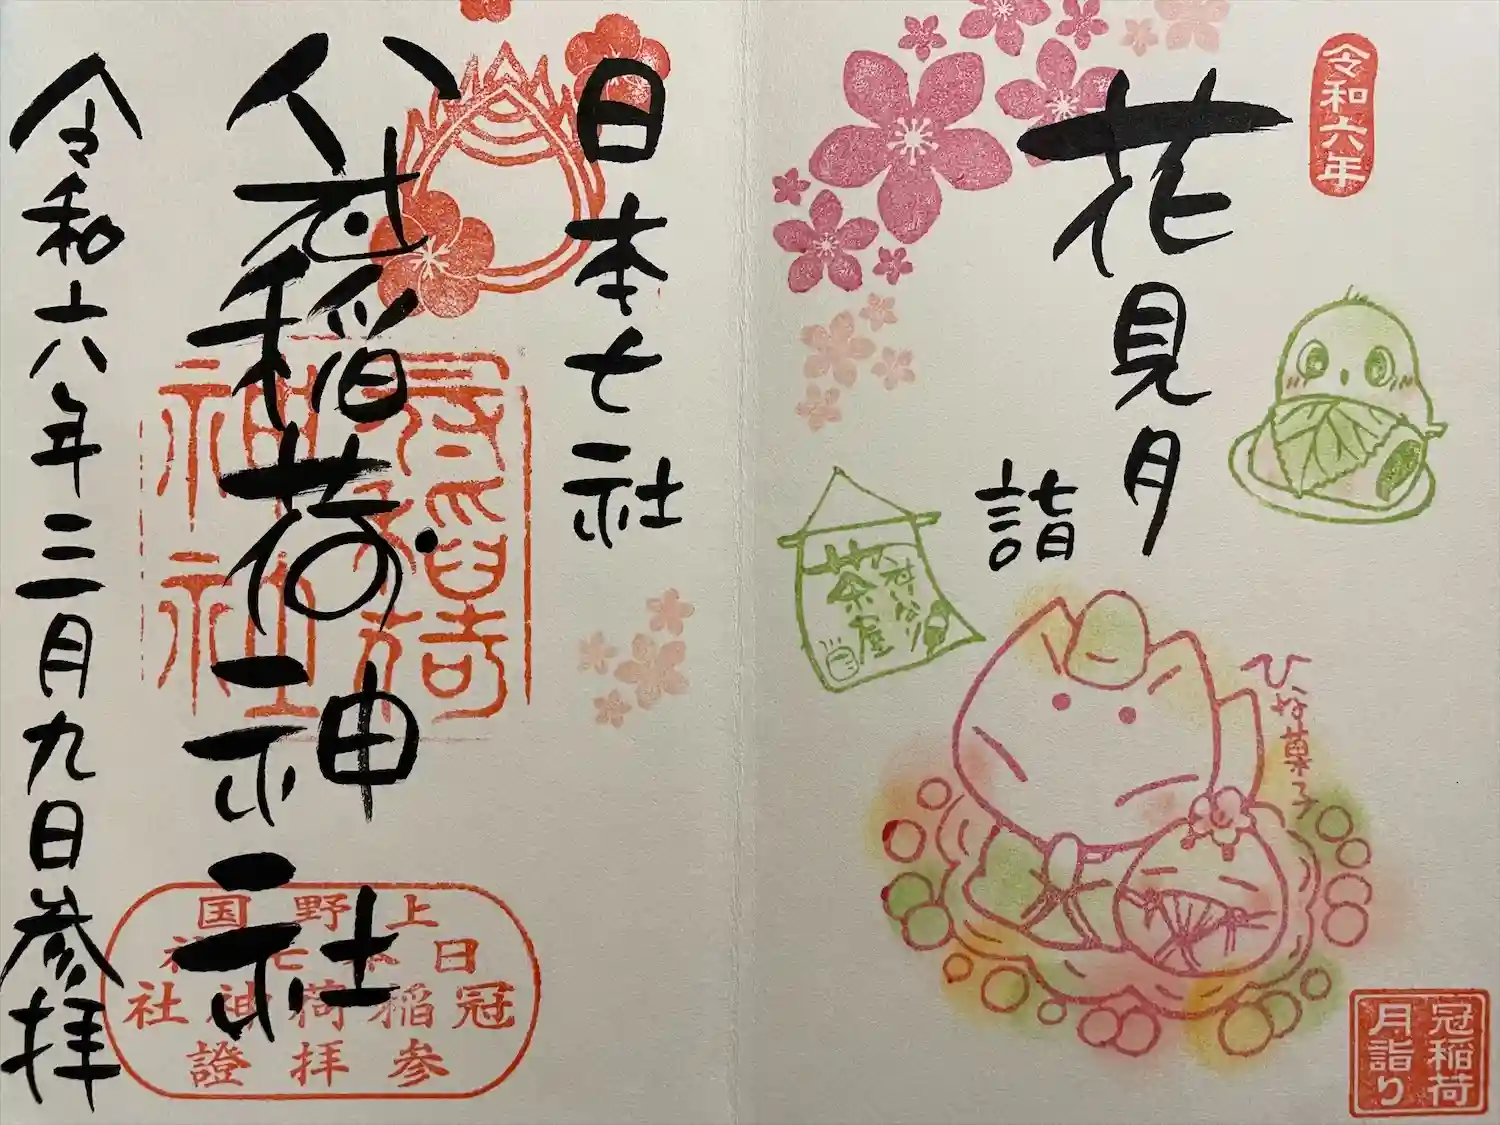 令和六年
花見月
詣
冠いなり
茶屋
ひな菓子
冠稲荷
月詣り
日本七社
冠稲荷神社
冠稲荷
神社
上野国
日本七社
冠稲荷神社
参拝證
令和六年三月九日参拝